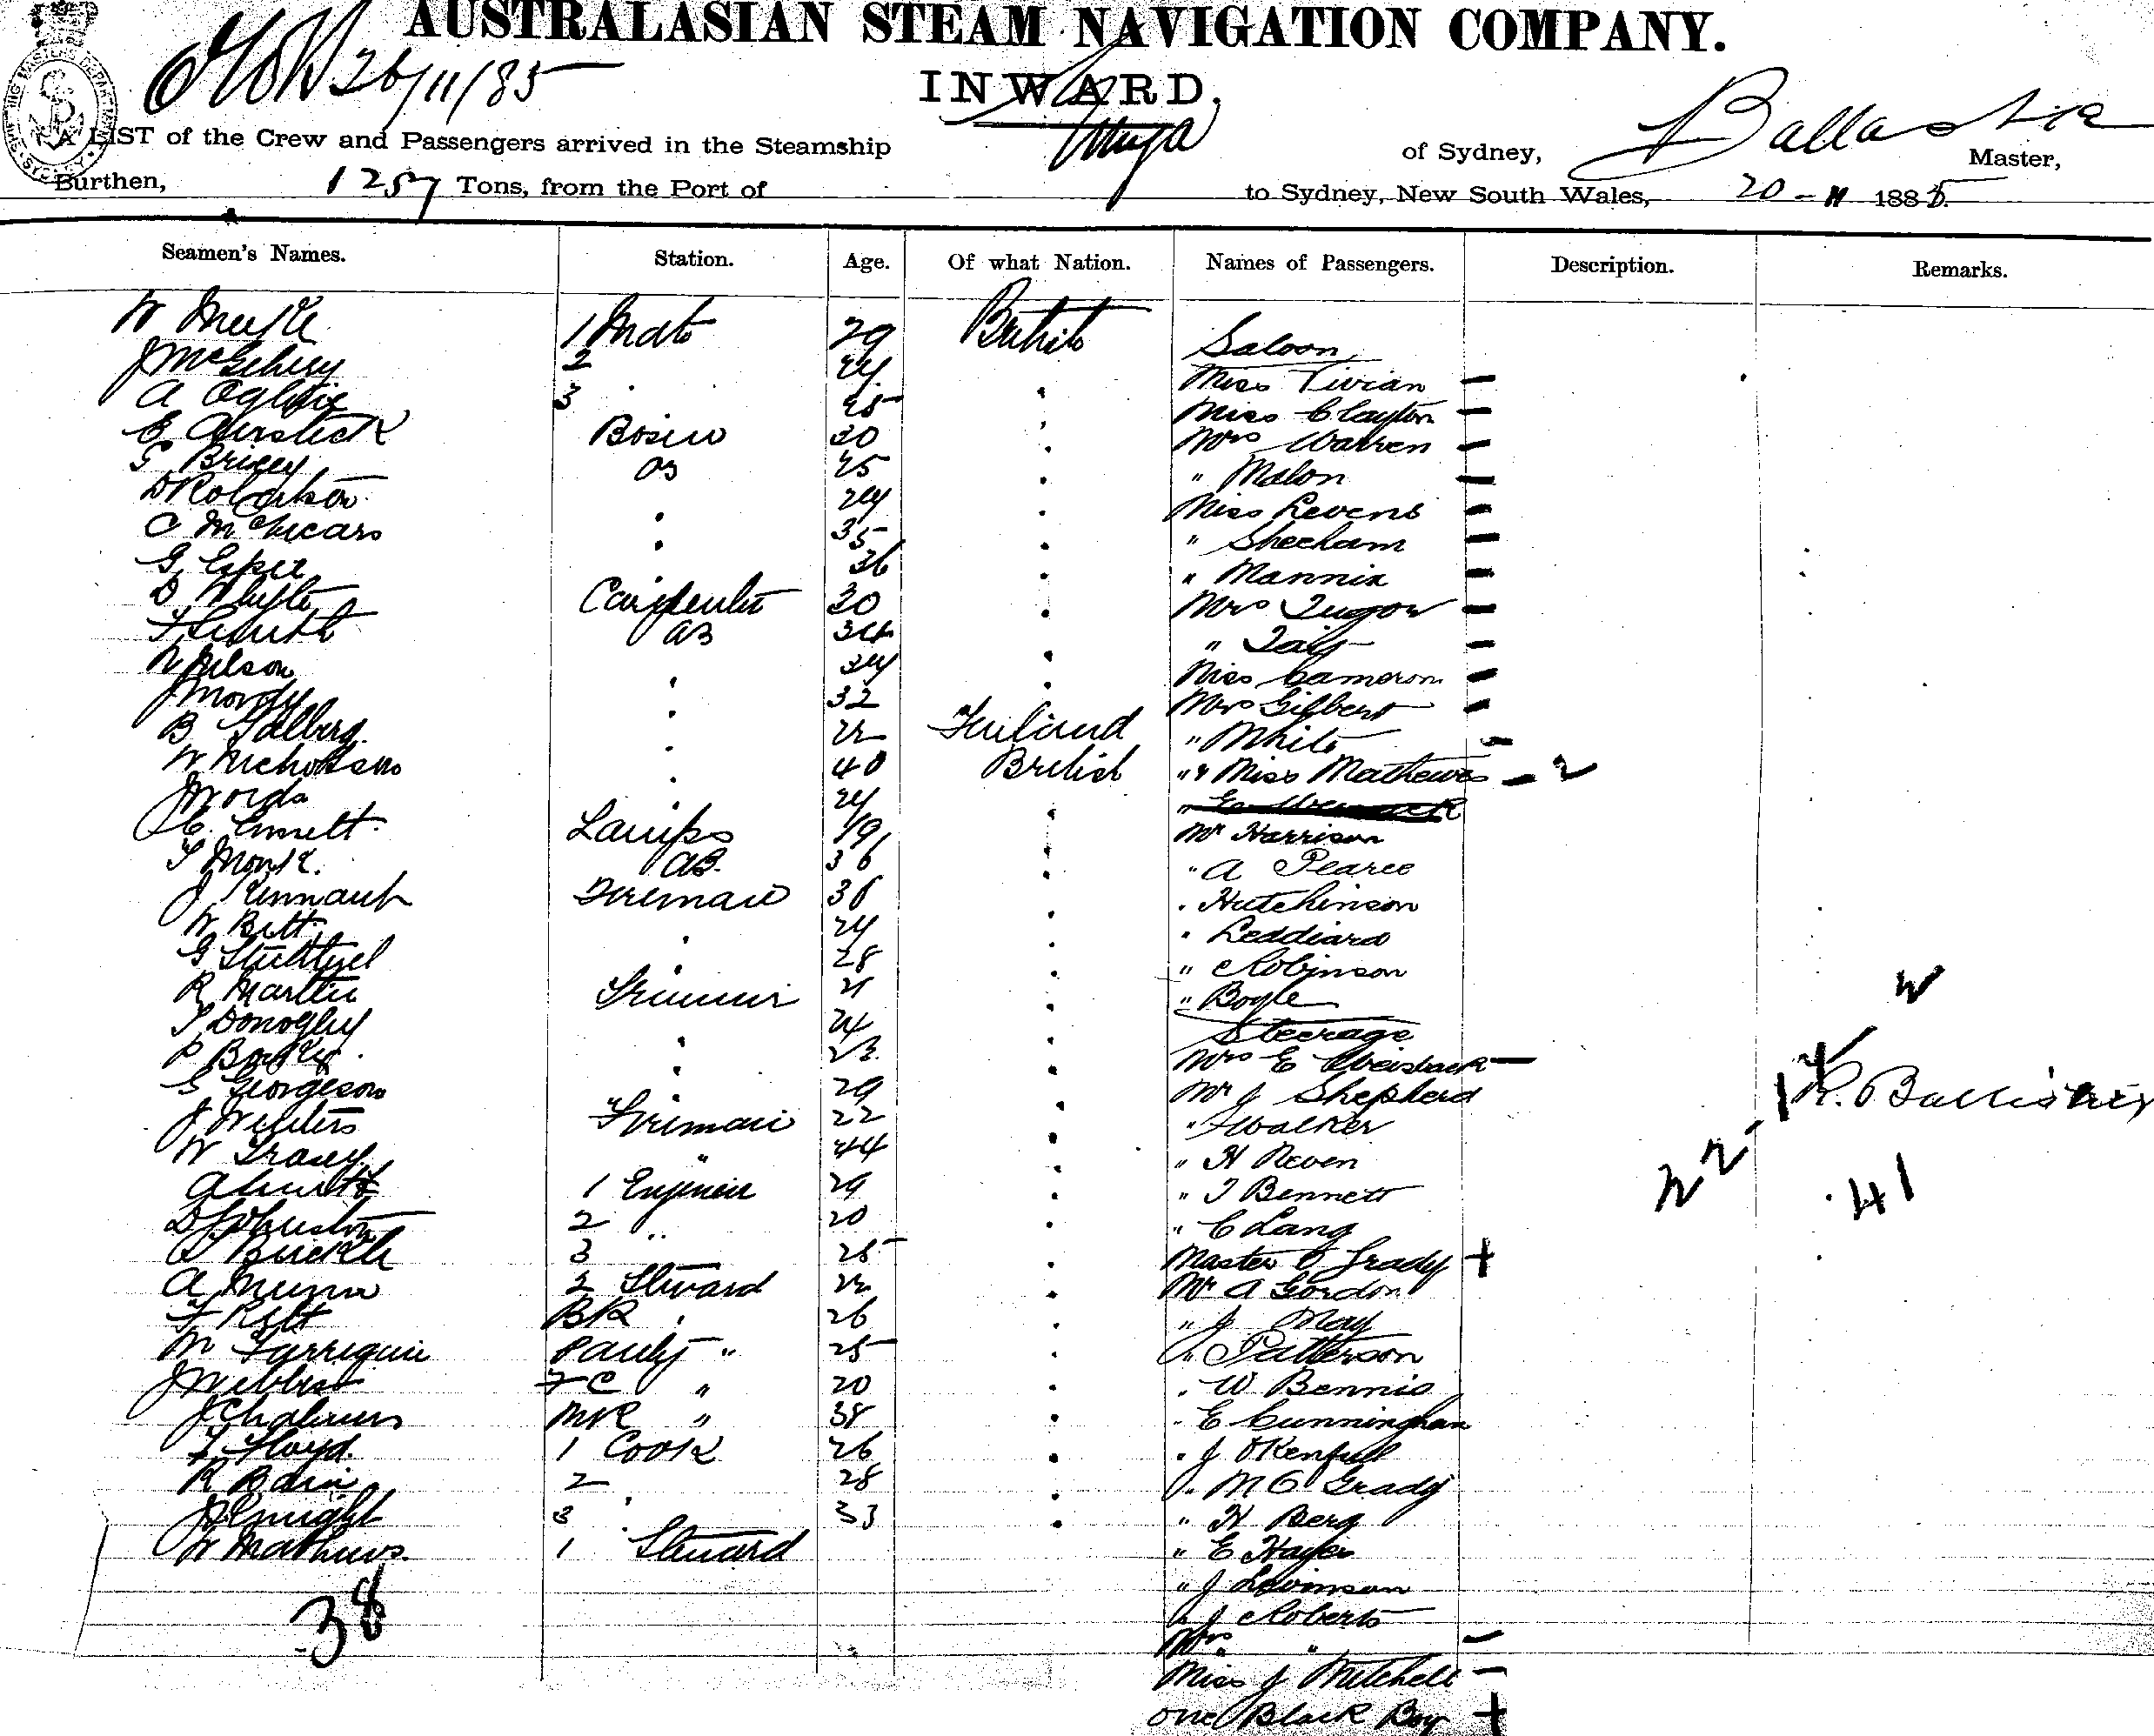 AUSTRALASIAN STEAM NAVIGATION COMPANY.
26/11/85
INWARD,
A LIST of the Crew and Passengers arrived in the Steamship
of Sydney,
Master,
Burthen, 1257 Tons, from the Port of to Sydney, New South Wales, 20-11 1885
Seamen's Names. Station. Age. Of what Nation. Names of Passengers. Description. Remarks.
1 Mate 29 British Saloon
2 24 Miss Vivian —
A Ogilvie 3 25 Miss Clayton —
Bosun 30 Mrs Warren —
25 " Malon —
D Robertson 24 Miss Levens —
C McVicars 35 " Sheeham —
G Espie 36 " Mannix —
D Whyte Carpenter 30 Mrs Tugow —
F Smith AB 34 " Taly —
N Nilson 24 Miss Cameron —
J Mordy 32 Mrs Gilbert —
B Salberg 22 Finland " White —
W Nicholson 40 British " & Miss Mathews — 2
24
C. Emmett Lamps 19 Mr Harrison
T Monk AB. 36 " A Pearce
J Kennaugh Fireman 36 " Hutchinson
W Bett 24 " Leddiard
28 " Robinson
R Martin Trimmer 21 " Bogle
T Donoghy 24 Steerage
23 Mrs E Weisback —
G Georgeson 29 Mr J Shepherd
Fireman 22 " Walker
W Tracey " 44 " H Reven
1 Engineer 29 " T Bennett
D Johnston 2 " 20 " C Lang
Buckle 3 25 Master O Grady +
A Munro 2 Steward 22 Mr A Gordon
BR 26 " J May
Pantry " 25 " Patterson
FC " 20 " W Bennis
J Chalmers " 38 " E Cunningham
Floyd 1 Cook 26 " J OKenfull
R Bain 2 28 " M O Grady
Knight 3 33 " H Berg
W Mathews 1 Steward " E Hayes
" J Levinson
38 " J Roberts
Mrs " —
Miss J Mitchell —
One Black Boy +
22
41